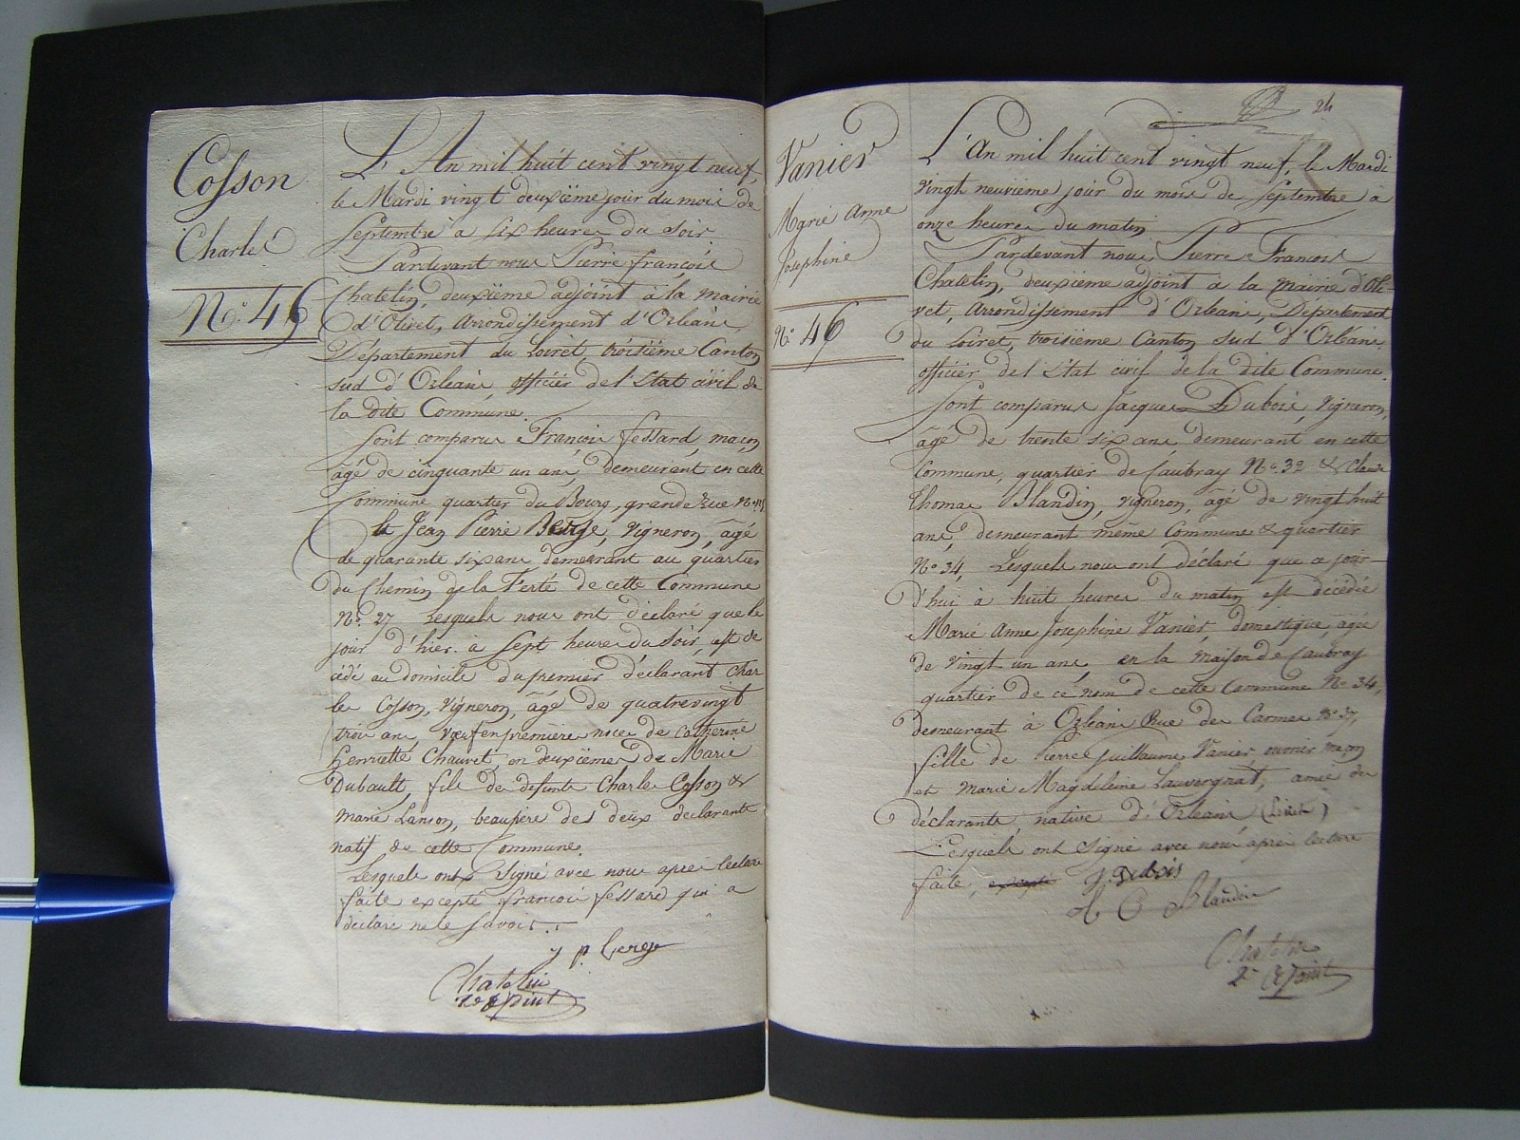 Cosson
Charles
N.o 45
L'An mil huit cent vingt neuf,
le Mardi vingt deuxième jour du mois de
Septembre à six heures du soir
Pardevant nous Pierre François
Chatelin, deuxième adjoint à la mairie
d'Olivet, Arrondissement d'Orléans,
Département du Loiret, troisième Canton
sud d'Orléans, officier de l'état civil de
la dite Commune.
Sont comparus François fessard, maçon,
âgé de cinquante un ans, demeurant en cette
Commune quartier du Bourg, grande Rue
Jean Pierre Berge, Vigneron, âgé
de quarante six ans demeurant au quartier
du Chemin de la Ferté de cette Commune
N.o 27 Lesquels nous ont déclaré que le
jour d'hier à sept heures du soir, est dé
cédé au domicile du premier déclarant Char
les Cosson, Vigneron, âgé de quatrevingt
trois ans, veuf en première noces de Catherine
henriette Chauvet, en deuxième de Marie
Dubault, fils de defunts Charles Cosson &
marie Lanson, beaupère des deux déclarants
natif de cette Commune.
Lesquels ont signé avec nous après lecture
faite excepté françois fessard qui a
déclaré ne le savoir.
j p berge
Chatelin
2e adjoint
24
Vanier
Marie Anne
Josephine
N.o 46
L'An mil huit cent vingt neuf, le Mardi
vingt neuvième jour du mois de Septembre à
onze heures du matin
Pardevant nous Pierre Francois
Chatelin, deuxième adjoint à la mairie d'Oli-
vet, Arrondissement d'Orléans, Département
du Loiret, troisième Canton sud d'Orléans,
officier de l'état civil de la dite Commune.
Sont comparus Jacques Dubois, Vigneron,
âgé de trente six ans demeurant en cette
Commune, quartier de Caubray N.o 32 & Claude
thomas Blandin, vigneron, âgé de vingt huit
ans, demeurant même Commune & quartier
N.o 34, Lesquels nous ont déclaré que ce jour-
d'hui à huit heures du matin est décédée
Marie Anne Josephine Vanier, domestique, agée
de vingt un ans, en la maison de Caubray
quartier de ce nom de cette Commune N.o 34,
demeurant à Orléans Rue des Carmes N.o 37,
fille de Pierre Guillaume Vanier, ouvrier maçon
et marie Magdeleine Lauvergnat, amie des
déclarants, native d'Orléans (Loiret)
Lesquels ont signé avec nous après lecture
faite, excepté J. Dubois
Blandin
Chatelin
2e adjoint